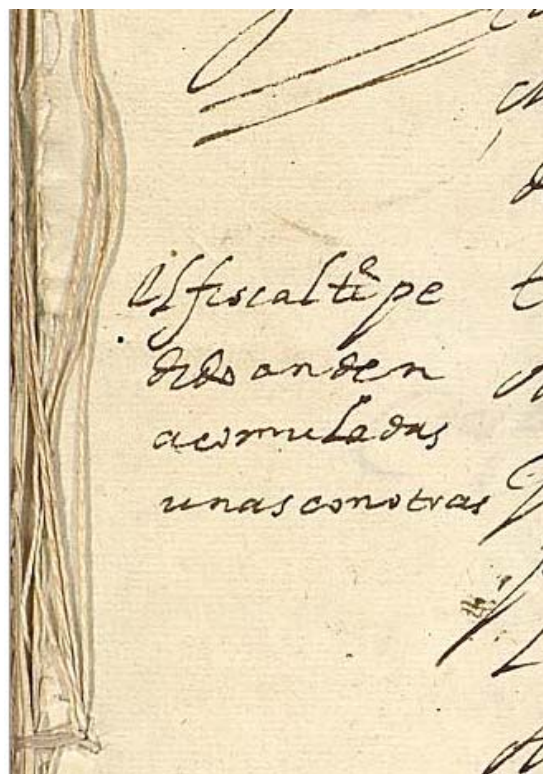 El fiscal tē pe
dido anden
acomuladas
unas con otras